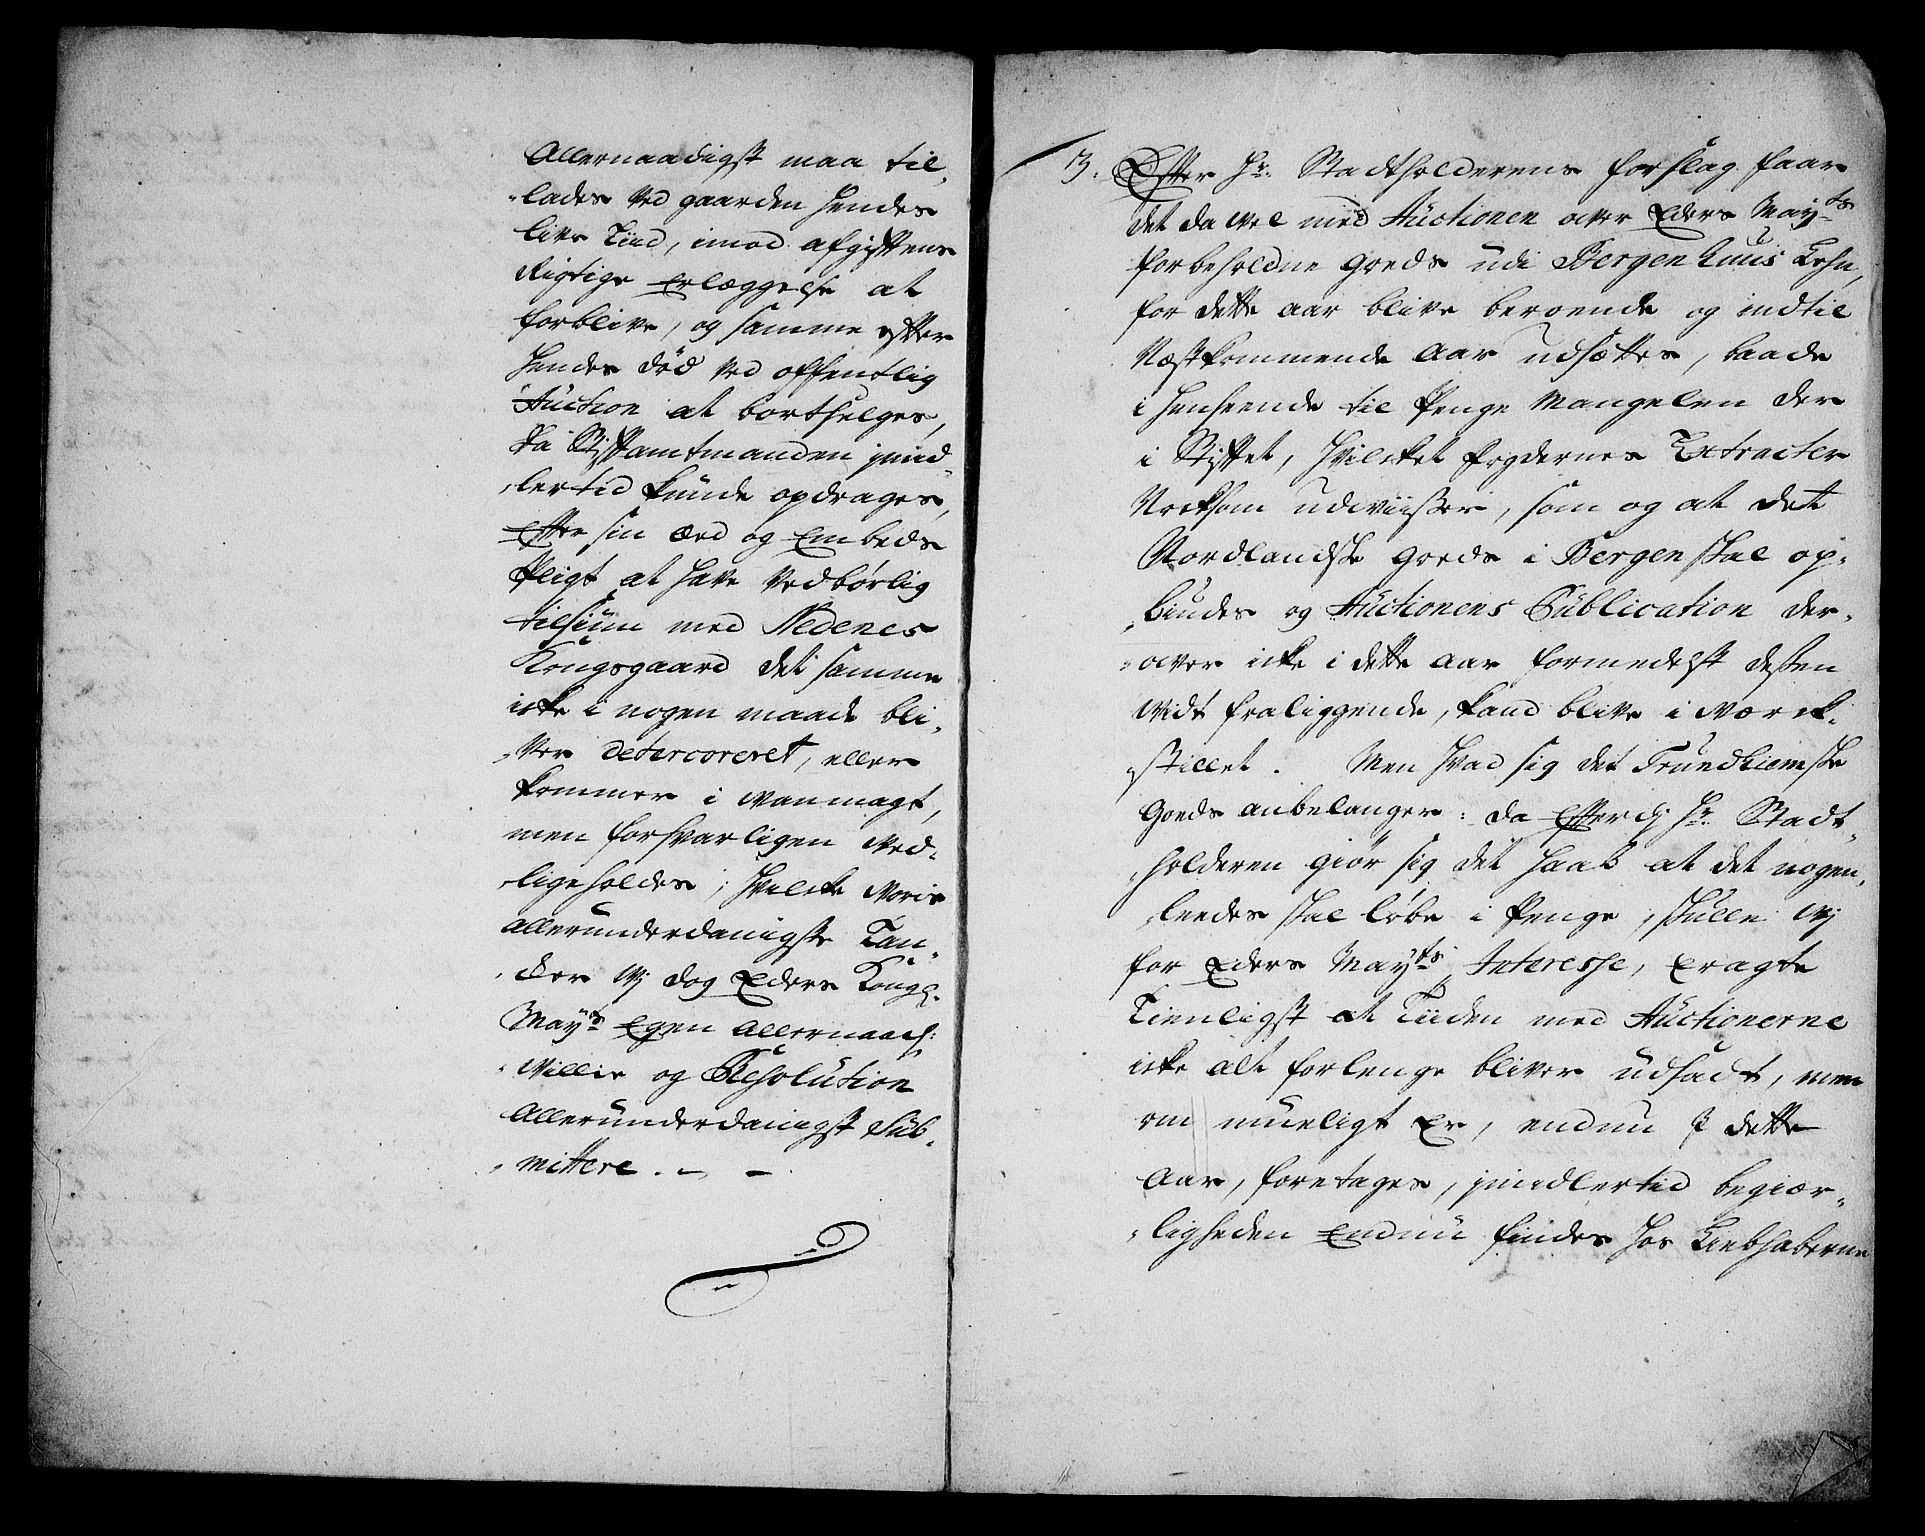 Allernaadigst maa til,
"lades ved gaarden hendes
livs Tiid, imod afgiftens
Rigtige Erlæggelse at
forblive, og samme efter
hendes død ved offentlig
Auction at bortselges,
Da Stiftamtmanden jmid,
"lertid kunde opdrages,
Efter sin æed og Embeds
Pligt at have vedbørlig
tilsiun med Nedenes
Kongsgaard det samme
icke i nogen maade bli,
"ver deterioreret, eller
kommer i vanmagt,
men forsvarligen ved,
"ligeholdes; hvilcke voris
allerunderdanigste Tan,
"cker vj dog Eders Kongl.
Mayts Egen allernaads:
Villie og Resolution
Allerunderdanigst Sub,
"mittere. - -
3. Efter Hr. Stadtholderens forslag faar
det da vel med Auctionen over Eders Mayts
forbeholdne goeds udi Bergenhuus Lehn,
for dette aar blive beroende og indtil
Næstkommende Aar udsættes, baade
i henseende til Penge Mangelen der
i Stiftet, hvilcket fogdernes Extracter
Noeksom udviisser, som og at det
Nordlandske goeds i Bergen skal op,
"biudes og Auctionens Publication der,
"over icke i dette aar formedelst dessen
vidt fraliggende, kand blive i værck,
"stillet. Men hvad sig det Trundhiemske
Goeds anbelanger: da Efterdj Hr. Stadt,
"holderen giør sig det haab at det nogen,
"leedes skal løbe i Penge, skulle vj
for Eders Mayts Interesse, Eragte
Tienligst at Tiiden med Auctionerne
icke alt forlenge bliver udsadt, men
om mueligt Er, endnu i dette
Aar, foretages, jmidlertid begiær,
"ligheden Endnu findes hos Liebhaberne